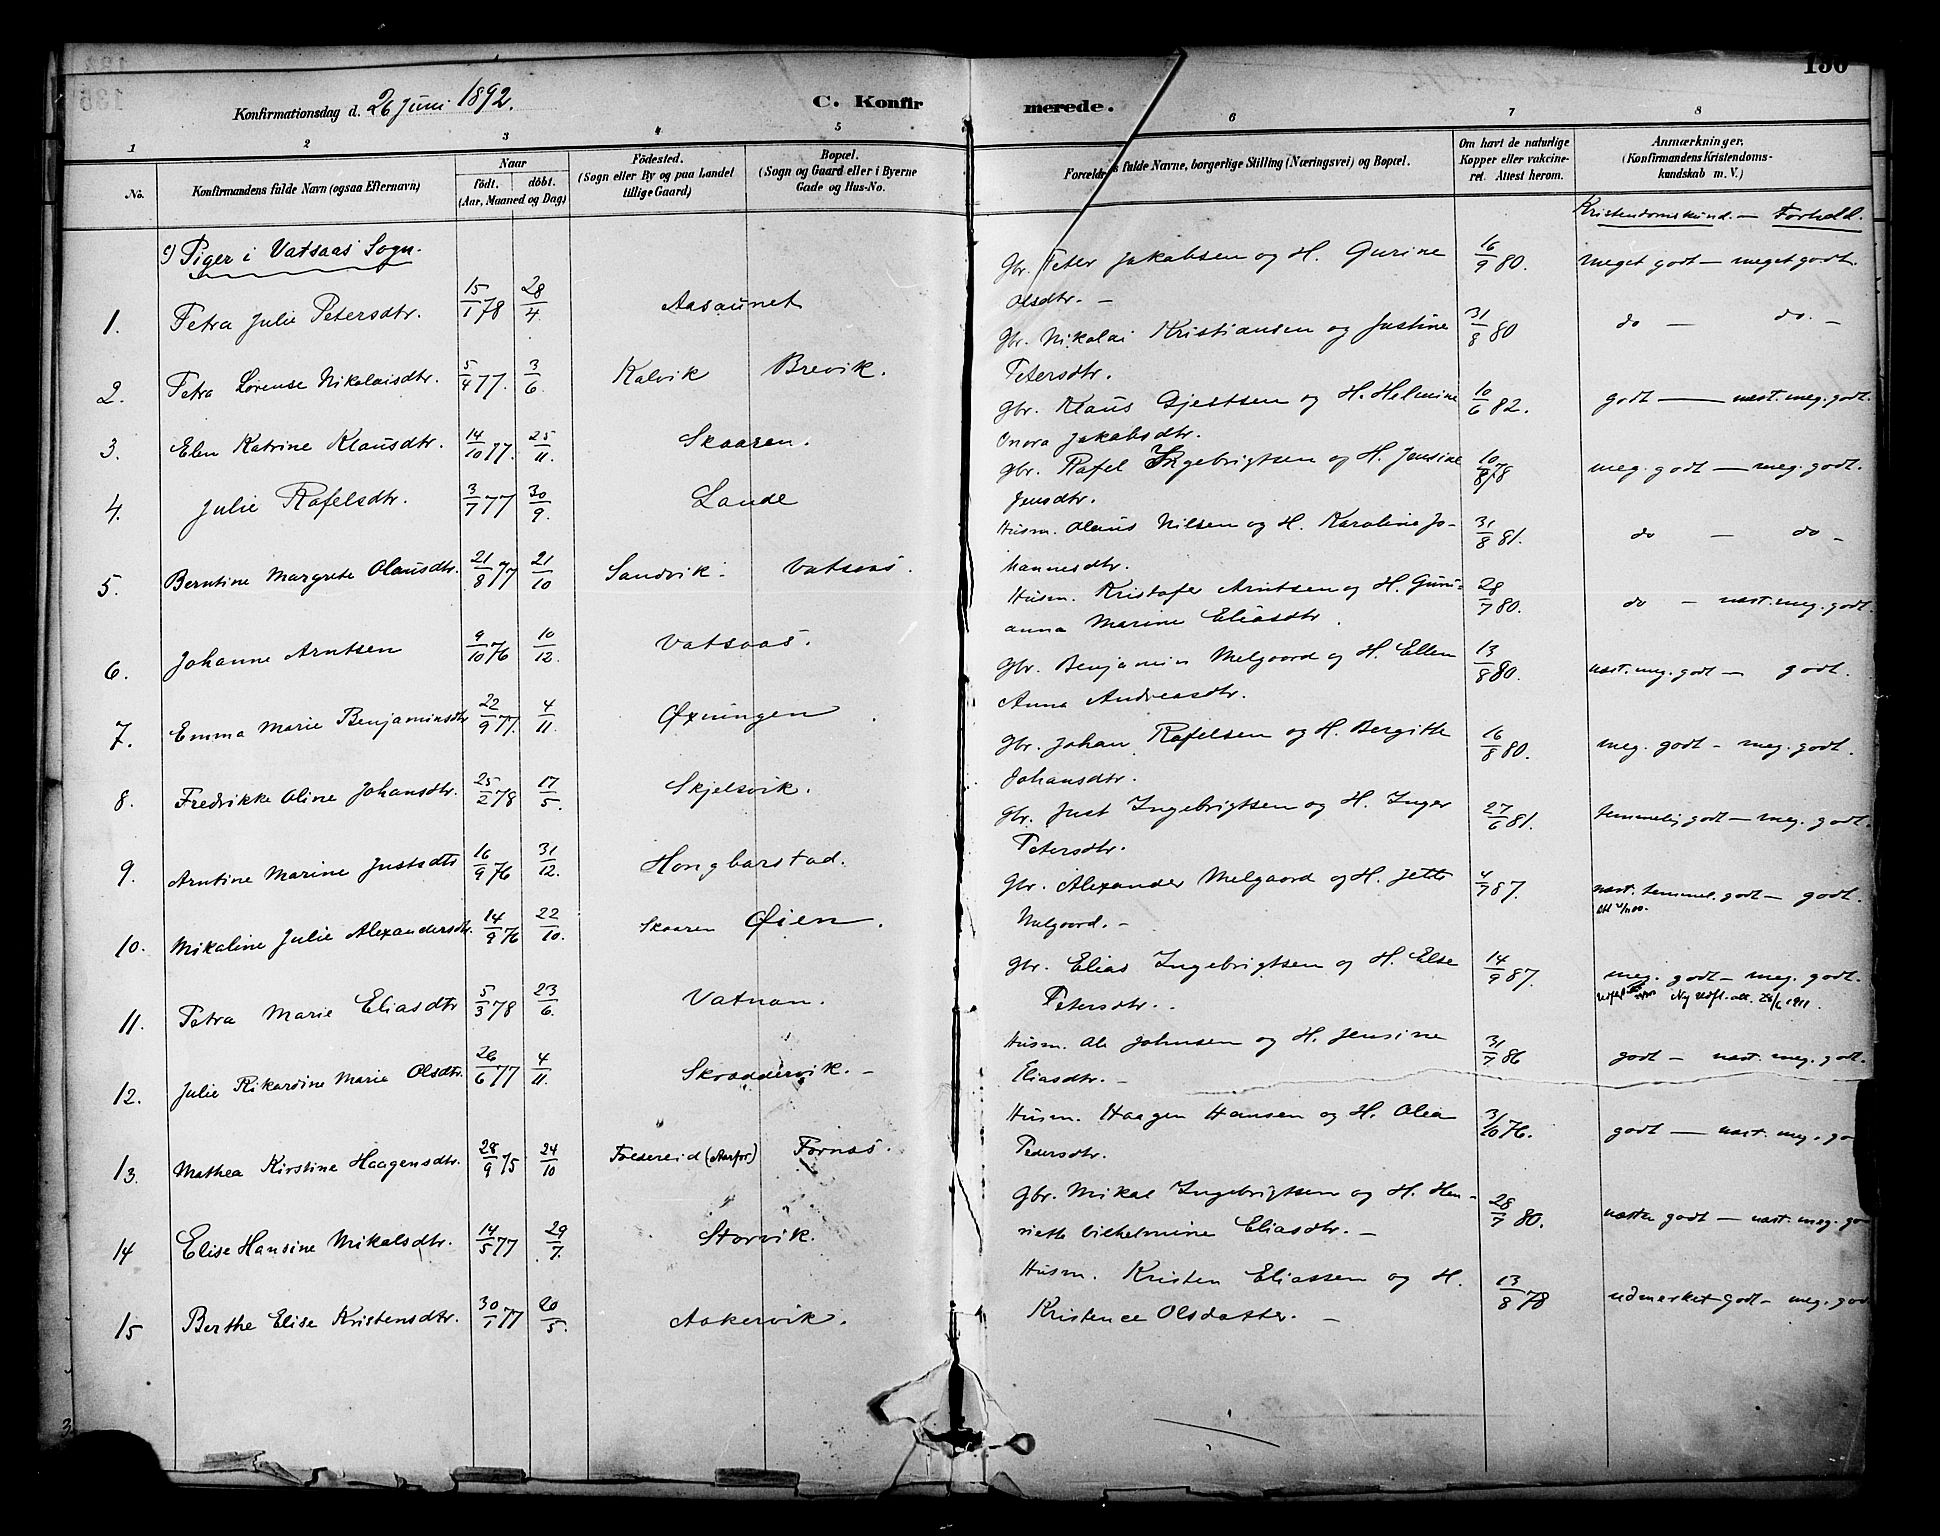 136
Konfirmationsdag d. 26 Juni 1892.
C. Konfirmerede.
1 2 3 4 5 6 7 8
No. Konfirmandens fulde Navn (ogsaa Efternavn) Naar födt. döbt. (Aar, Maaned og Dag) Födested. (Sogn eller By og paa Landet tillige Gaard) Bopæl. (Sogn og Gaard eller i Byerne Gade og Hus-No. Forældres fulde Navne, borgerlige Stilling (Næringsvei) og Bopæl. Om havt de naturlige Kopper eller vakcineret. Attest herom. Anmærkninger. (Konfirmandens Kristendomskundskab m. V.)
Kristendomskund. – Forhold.
c) Piger i Vatsaas Sogn.
1. Petra Julie Petersdtr. 15/1 78 28/4 Aasaunet Gbr. Peter Jakobsen og H. Gurine Olsdtr. – 16/9 80. meget godt – meget godt.
2. Petra Lorense Nikolaisdtr. 5/4 77. 3/6 Kalvik Brevik. Gbr. Nikolai Kristiansen og Justine Petersdtr. 31/8 80 do – do. –
3. Elen Katrine Klausdtr. 14/10 77. 25/11. Skaaren. Gbr. Klaus Gjertsen og H. Helmine Onora Jakobsdtr. 10/6 82. godt – næst. meg. godt.
4. Julie Rafelsdtr. 3/7 77 30/9. Lande Gbr. Rafel Ingebrigtsen og H. Jensine Jensdtr. 10/8 78 meg. godt – meg. godt.
5. Berntine Margrete Olausdtr. 21/8 77 21/10 Sandvik. Vatsaas. Husm. Olaus Nilsen og H. Karoline Johannesdtr. 31/8 81. do – do –
6. Johanne Arntsen 9/10 76 10/12. Vatsaas. Husm. Kristofer Arntsen og H. Gurianna Marine Eliasdtr. 28/7 80. do – næst. meg. godt
7. Emma Marie Benjaminsdtr 22/9 77. 4/11. Øxningen. Gbr. Benjamin Melgaard og H. Ellen Anna Andreasdtr. 13/8 80. næst. meg. godt – godt.
8. Fredrikke Oline Johansdtr. 25/2 78 17/5. Skjelsvik. Gbr. Johan Rafelsen og H. Bergitte Johansdtr. 16/8 80. meg. godt – meg. godt.
9. Arntine Marine Justsdtr 16/9 76 31/12. Hongbarstad. Gbr. Just Ingebrigtsen og H. Inger Petersdtr. 27/6 81. temmelig godt – meg. godt.
10. Mikaline Julie Alexandersdtr. 14/9 76 22/10. Skaaren Øien. Gbr. Alexander Melgaard og H. Jette Melgaard. – 4/9 87. næst. temmel. godt – godt.
11. Petra Marie Eliasdtr 5/3 78 23/6. Vatnan. Gbr. Elias Ingebrigtsen og H. Else Petersdtr. 14/9 87. meg. godt – meg. godt.
Ny udfl. att. 28/6 1911.
12. Julie Rikardine Marie Olsdtr. 26/6 77 4/11. Skraddervik. – Husm. Ole Johnsen og H. Jensine Eliasdtr. – 31/7 86 godt – næst. meg. godt.
13. Mathea Kirstine Haagensdtr. 28/9 75 24/10 Foldereid (Aarfor) Fornæs. Husm. Haagen Hansen og H. Olea Pedersdtr. 3/10 76. godt – næst. meg. go
14 Elise Hansine Mikalsdtr. 14/5 77 29/7. Storvik. Gbr. Mikal Ingebrigtsen og H. Henriette Vilhelmine Eliasdtr. – 28/7 80. næsten godt – næst. meg. go
15 Berthe Elise Kristensdtr. 30/1 77 20/5. Aakervik. Husm. Kristen Eliassen og H. Kristence Olsdatter. – 13/8 78 udmerket godt – meg. god